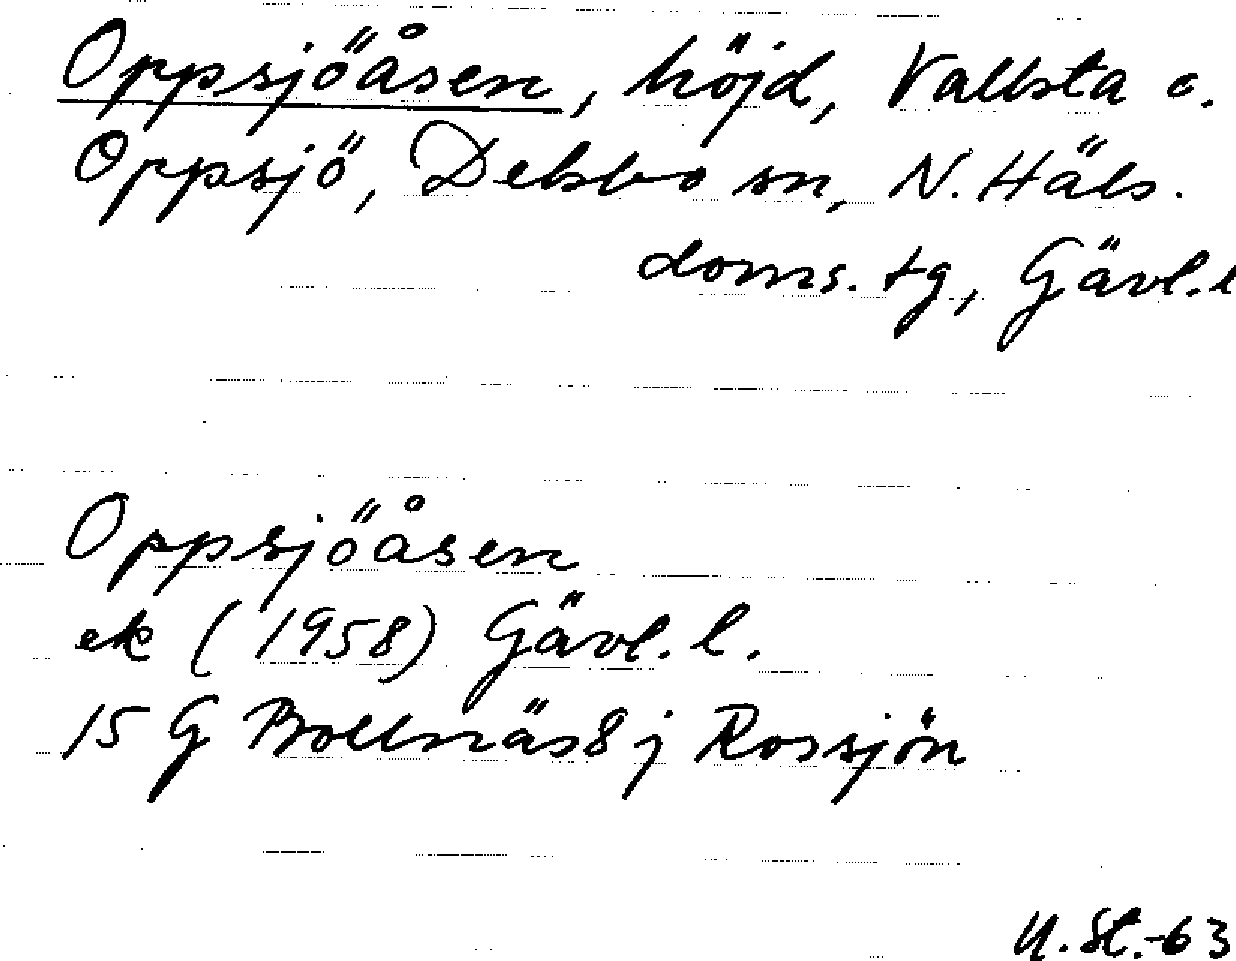 Oppsjöåsen, höjd, Vallsta o.
Oppsjö, Delsbo sn, N. Häls.
doms. tg, Gävl. l
Oppsjöåsen
ek (1958) Gävl. l.
15 G Bollnäs 8 j Rossjön
U. St. -63